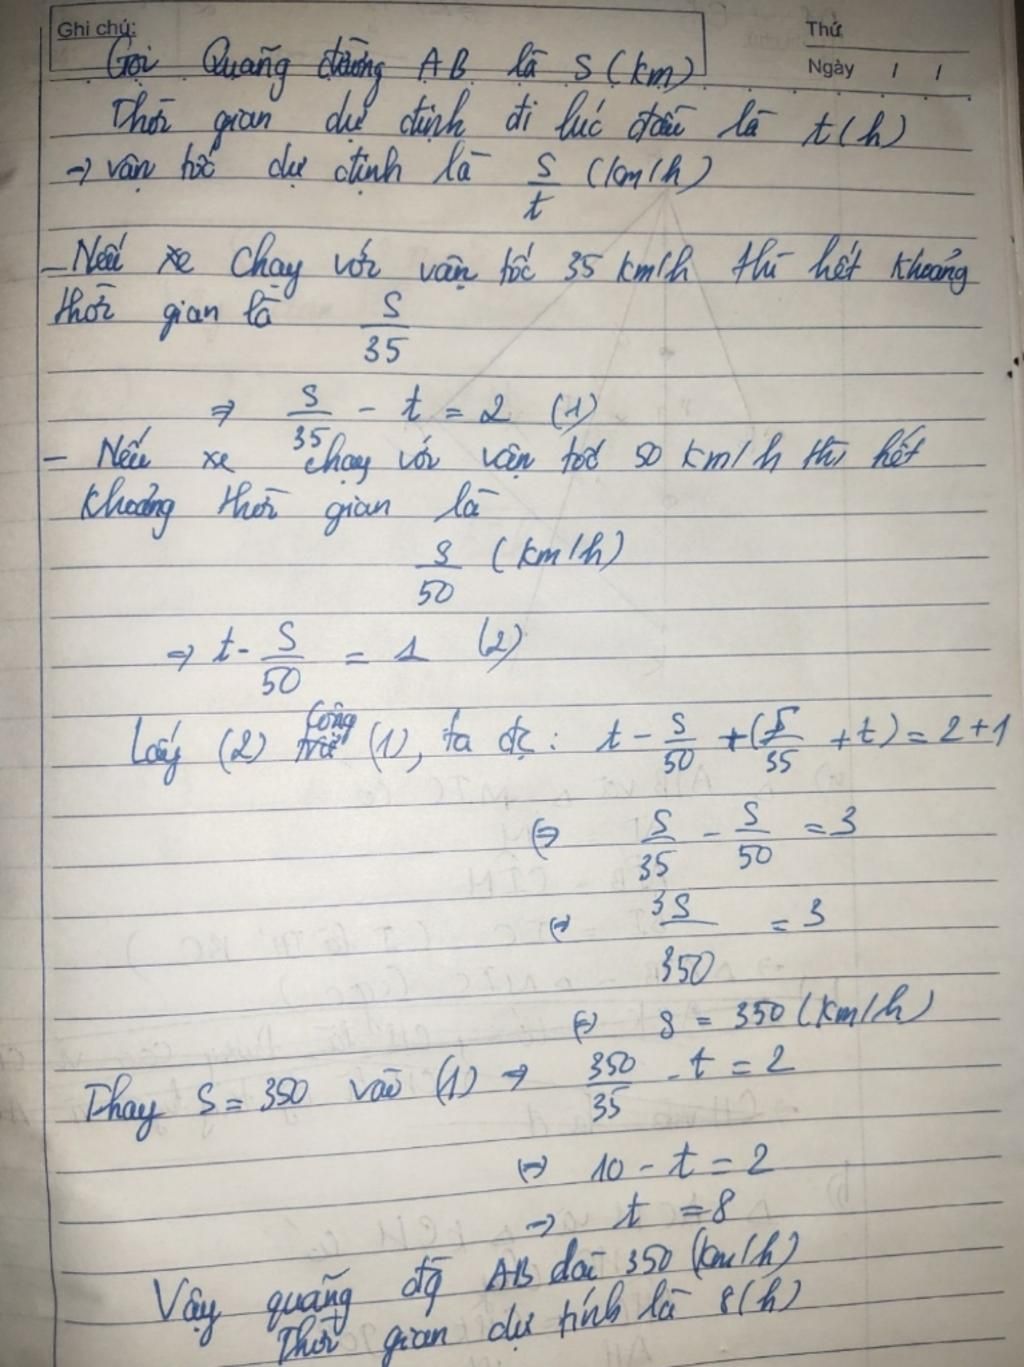 Ghi chú:
Thứ
Ngày / /
Gọi Quãng đường AB là S (km)
Thời gian dự định đi lúc đầu là t(h)
→ vận tốc dự định là S/t (km/h)
- Nếu xe chạy với vận tốc 35 km/h thì hết khoảng
thời gian là S/35
⇒ S/35 - t = 2 (1)
- Nếu xe chạy với vận tốc 50 km/h thì hết
khoảng thời gian là
S/50 (km/h)
⇒ t - S/50 = 1 (2)
Lấy (2) cộng (1), ta đc: t - S/50 + (S/35 + t) = 2+1
⇔ S/35 - S/50 = 3
⇔ 3S/350 = 3
⇔ S = 350 (km/h)
Thay S = 350 vào (1) ⇒ 350/35 - t = 2
⇔ 10 - t = 2
⇒ t = 8
Vậy quãng đg AB dài 350 (km/h)
Thời gian dự tính là 8(h)